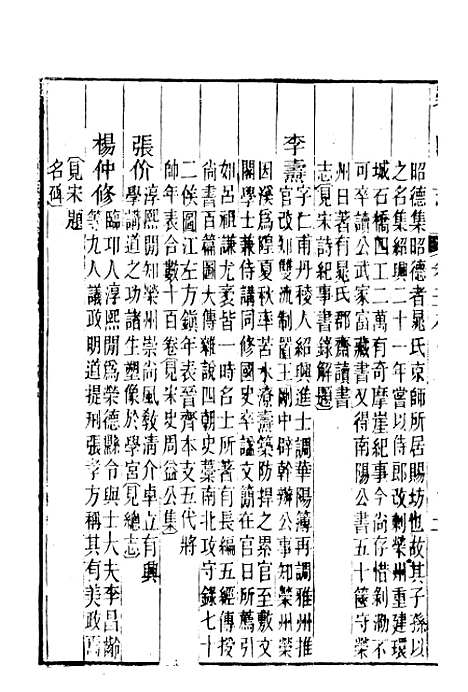 昭德集昭德者晁氏京師所居賜坊也故其子孫以
之名集紹興二十一年嘗以侍郎改刺榮州重建環
城石橋四工二萬有奇摩崖紀事今尚存惜剝泐不
可卒讀公武家富藏書又得南陽公書五十篋守榮
州日著有晁氏郡齋讀書
志(見宋詩紀事書錄解題)
李燾字仁甫丹稜人紹興進士調華陽簿再調雅州推
官改知雙流制置王剛中辟幹辦公事知榮州榮
因溪爲隍夏秋率苦水潦燾築防捍之累官至敷文
閣學士兼侍講同修國史卒諡文簡官日所薦引
如呂祖謙尤袤皆一時名士所著有長編五經傳授
尚書百篇圖大傳雜說四朝史藁南北攻守錄七十
二侯圖江左方鎮年表晉齊本支五代將
帥年表合數十百卷(見宋史周益公集)
張价淳熙間知榮州崇尚風敎淸介卓立有興
學講道之功諸生塑像于學宮(見總志)
楊仲修臨邛人淳熙間爲榮德縣令與士大夫李昌齡
等九人議政明道提刑張孝方稱其有美政焉
(見宋題
名碑)